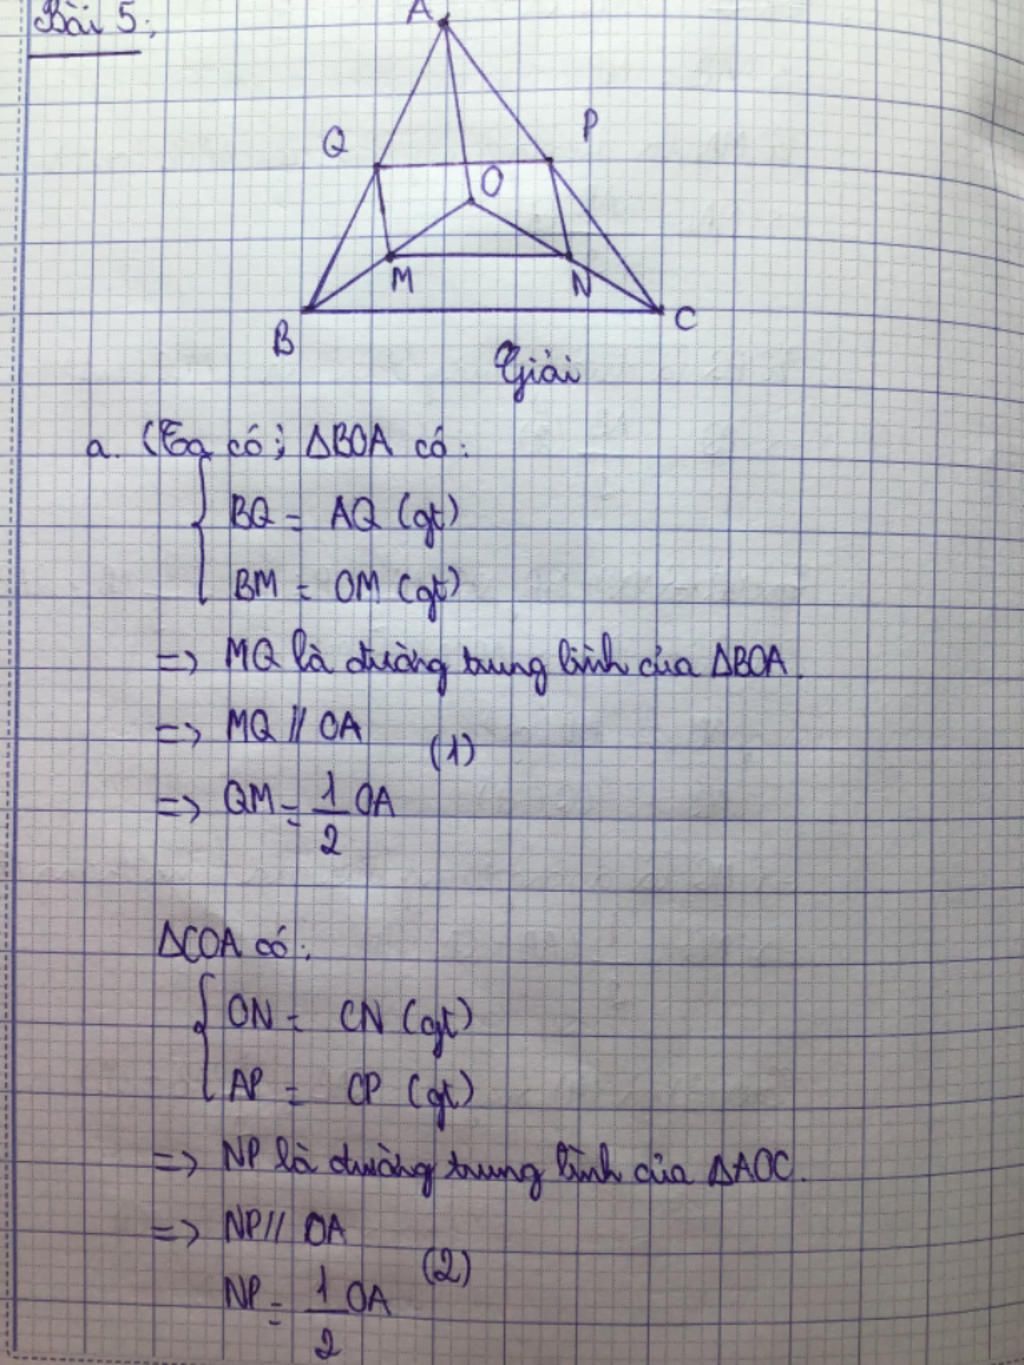 Bài 5:
A
Q
P
O
M
N
B
C
Giải
a. Ta có; ΔBOA có:
BQ = AQ (gt)
BM = OM (gt)
=> MQ là đường trung bình của ΔBOA.
=> MQ // OA
(1)
=> QM = 1/2 OA
ΔCOA có:
ON = CN (gt)
AP = CP (gt)
=> NP là đường trung bình của ΔAOC.
=> NP // OA
(2)
NP = 1/2 OA